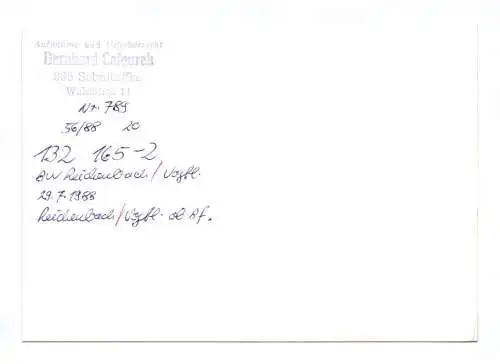 Aufnahme und Urheberrecht
Bernhard
Nr. 789
56/88 20
132 165-2
BW Reichenbach/Vogtl.
29.7.1988
Reichenbach/Vogtl. ob. Bf.